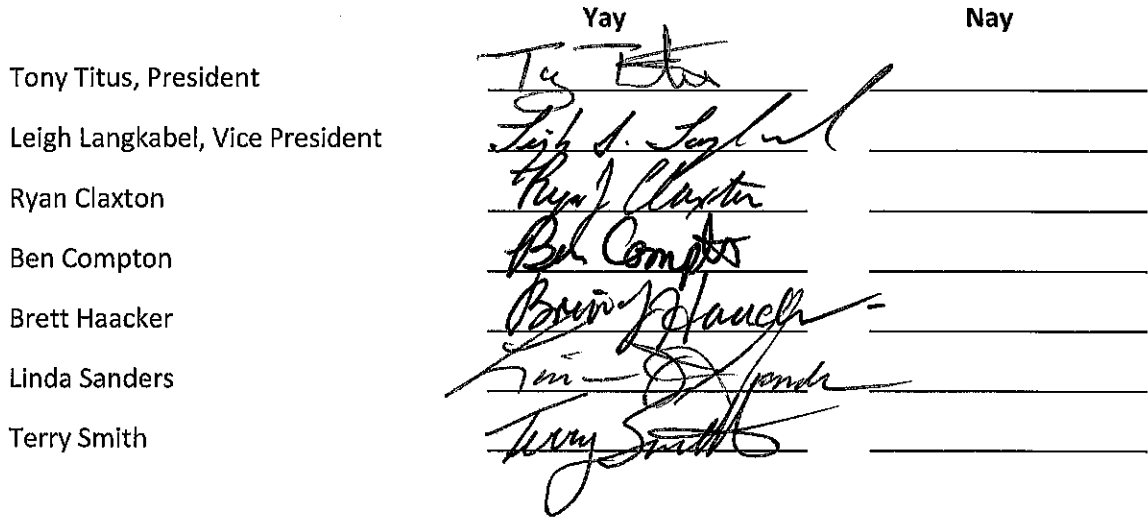 Yay Nay
Tony Titus, President Tony Titus
Leigh Langkabel, Vice President Leigh
Ryan Claxton Ryan J Claxton
Ben Compton Ben Compton
Brett Haacker
Linda Sanders
Terry Smith Terry Smith